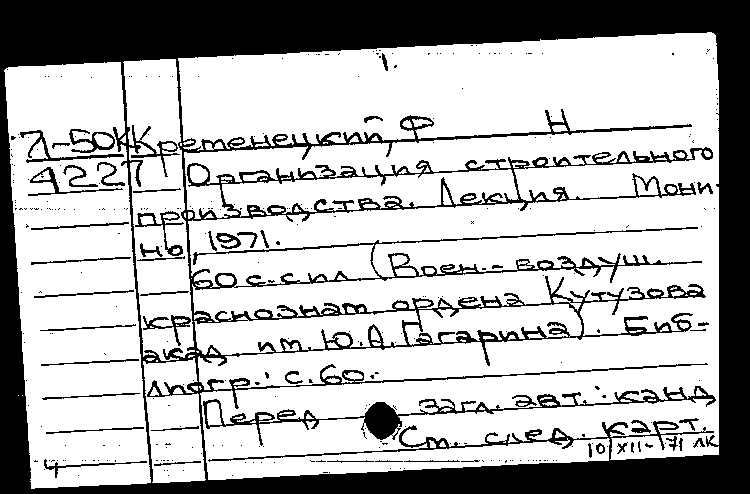 1.
Л-50К Кременецкий, Ф Н
4227 Организация строительного
производства. Лекция. Мони-
но, 1971.
60 с. с ил (Воен.-воздуш.
краснознам. ордена Кутузова
акад. им. Ю.А. Гагарина). Биб-
лиогр.: с. 60.
Перед загл. авт.: канд
См. след. карт.
10/XII-71 ЛК
4